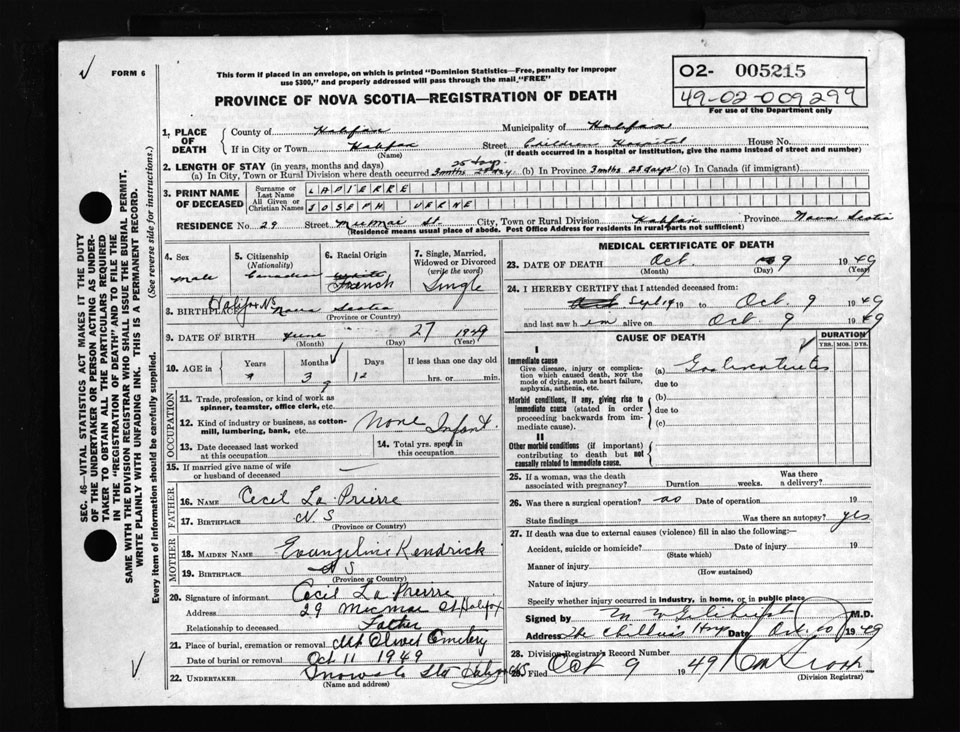 FORM 6
This form if placed in an envelope, on which is printed "Dominion Statistics—Free, penalty for improper
use $300," and properly addressed will pass through the mail, "FREE"
PROVINCE OF NOVA SCOTIA—REGISTRATION OF DEATH
O2- 005215
49-02-009299
For use of the Department only
SEC. 46—VITAL STATISTICS ACT MAKES IT THE DUTY
OF THE UNDERTAKER OR PERSON ACTING AS UNDER-
TAKER TO OBTAIN ALL THE PARTICULARS REQUIRED
IN THE "REGISTRATION OF DEATH" AND TO FILE THE
SAME WITH THE DIVISION REGISTRAR WHO SHALL ISSUE THE BURIAL PERMIT.
WRITE PLAINLY WITH UNFADING INK. THIS IS A PERMANENT RECORD.
Every item of Information should be carefully supplied. (See reverse side for instructions.)
1. PLACE OF DEATH
County of Halifax Municipality of Halifax
If in City or Town Halifax Street Children Hospital House No.
(Name) (If death occurred in a hospital or institution, give the name instead of street and number)
2. LENGTH OF STAY (in years, months and days)
(a) In City, Town or Rural Division where death occurred 3 mths 25 days (b) In Province 3 mths 28 days (c) In Canada (if immigrant)
3. PRINT NAME OF DECEASED
Surname or Last Name LAPIERRE
All Given or Christian Names JOSEPH VERNE
RESIDENCE No. 29 Street Micmac St. City, Town or Rural Division Halifax Province Nova Scotia
(Residence means usual place of abode. Post Office Address for residents in rural parts not sufficient)
4. Sex Male
5. Citizenship (Nationality) Canadian
6. Racial Origin White French
7. Single, Married, Widowed or Divorced (write the word) Single
8. BIRTHPLACE Halifax NS Nova Scotia
(Province or Country)
9. DATE OF BIRTH June 27 1949
(Month) (Day) (Year)
10. AGE in Years Months Days If less than one day old
3 12 hrs. or min.
OCCUPATION
11. Trade, profession, or kind of work as spinner, teamster, office clerk, etc.
12. Kind of industry or business, as cotton-mill, lumbering, bank, etc. None Infant
13. Date deceased last worked at this occupation
14. Total yrs. spent in this occupation
15. If married give name of wife or husband of deceased
FATHER
16. NAME Cecil La Prierre
17. BIRTHPLACE N.S
(Province or Country)
MOTHER
18. MAIDEN NAME Evangeline Kendrick
19. BIRTHPLACE N S
(Province or Country)
20. Signature of informant Cecil La Prierre
Address 29 Micmac St Halifax
Relationship to deceased Father
21. Place of burial, cremation or removal Mt Olivet Cemetery
Date of burial or removal Oct 11 1949
22. UNDERTAKER Snows
(Name and address)
MEDICAL CERTIFICATE OF DEATH
23. DATE OF DEATH Oct. 9 1949
(Month) (Day) (Year)
24. I HEREBY CERTIFY that I attended deceased from:
Sept 19 to Oct. 9 1949
and last saw him alive on Oct. 9 1949
CAUSE OF DEATH
DURATION
YRS. MOS. DYS.
I
Immediate cause
Give disease, injury or complication which caused death, NOT the mode of dying, such as heart failure, asphyxia, asthenia, etc.
(a) Gastroenteritis
due to
Morbid conditions, if any, giving rise to immediate cause (stated in order proceeding backwards from immediate cause).
(b)
due to
(c)
II
Other morbid conditions (if important) contributing to death but not causally related to immediate cause.
25. If a woman, was the death associated with pregnancy? Duration weeks. Was there a delivery?
26. Was there a surgical operation? no Date of operation 19
State findings Was there an autopsy? yes
27. If death was due to external causes (violence) fill in also the following:—
Accident, suicide or homicide? Date of injury 19
(State which)
Manner of injury
(How sustained)
Nature of injury
Specify whether injury occurred in industry, in home, or in public place
Signed by M.D.
Address The Children's Hosp Date Oct. 10 1949
28. Division Registrar's Record Number
29. Filed Oct 9 1949
(Division Registrar)